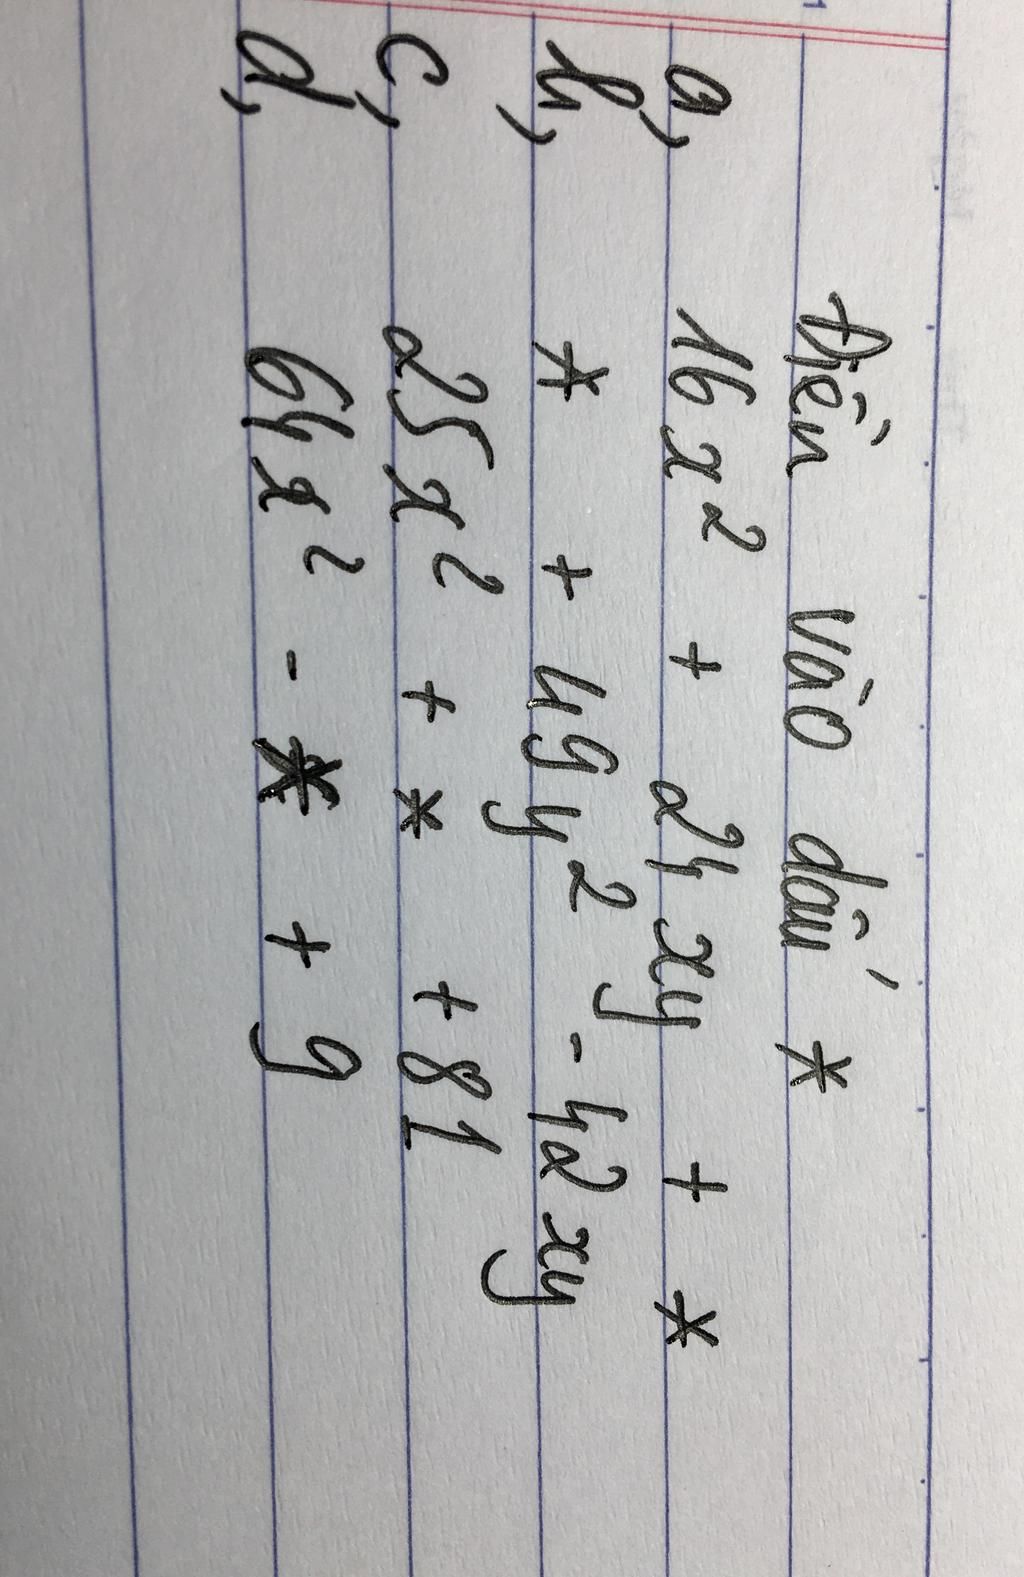 Điền vào dấu *
a, 16x² + 24xy + *
b, * + 49y² - 42xy
c, 25x² + * + 81
d, 64x² - * + 9